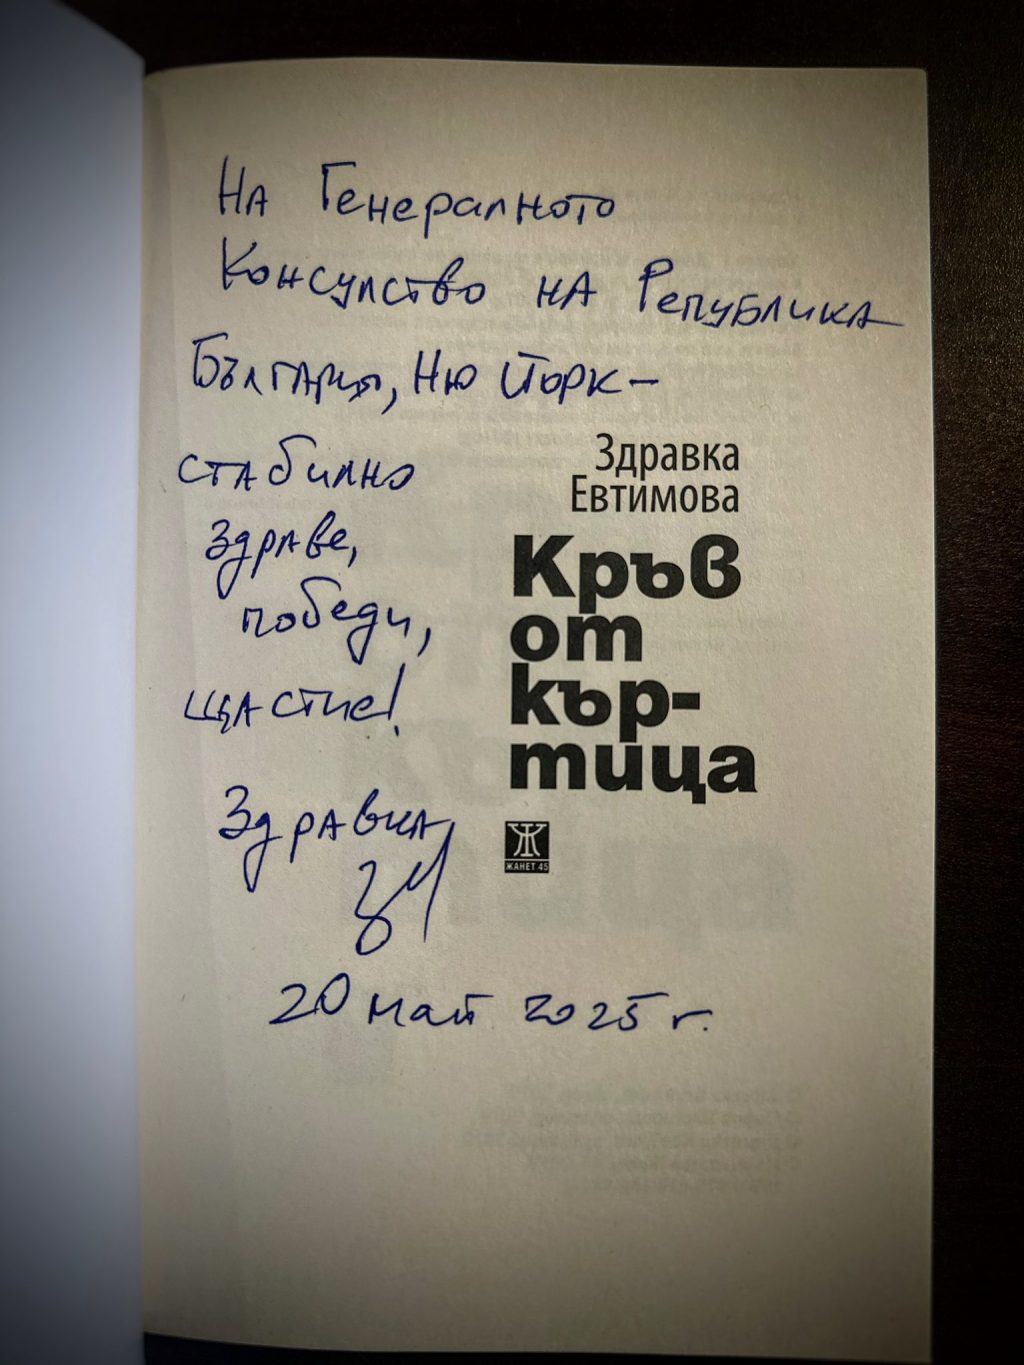 На Генералното
Консулство на Република
България, Ню Йорк –
стабилно
здраве,
победи,
щастие!
Здравка
20 май 2025 г.
Здравка
Евтимова
Кръв
от
кър-
тица
ЖАНЕТ 45